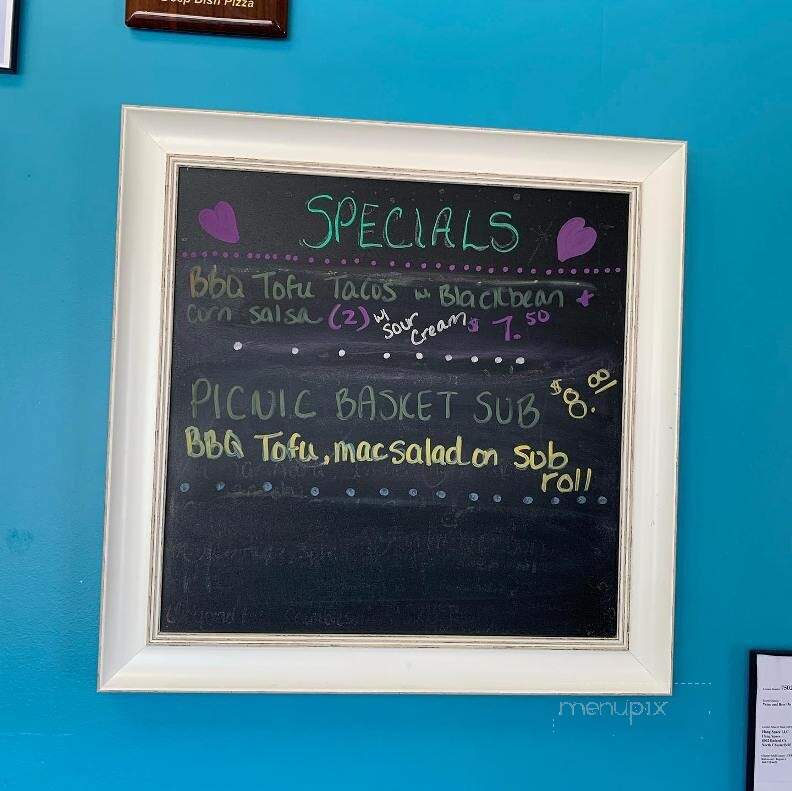 Deep Dish Pizza
SPECIALS
BBQ Tofu Tacos w Blackbean +
corn salsa (2) w sour cream $7.50
PICNIC BASKET SUB $8.00
BBQ Tofu, mac salad on sub
roll
menupix